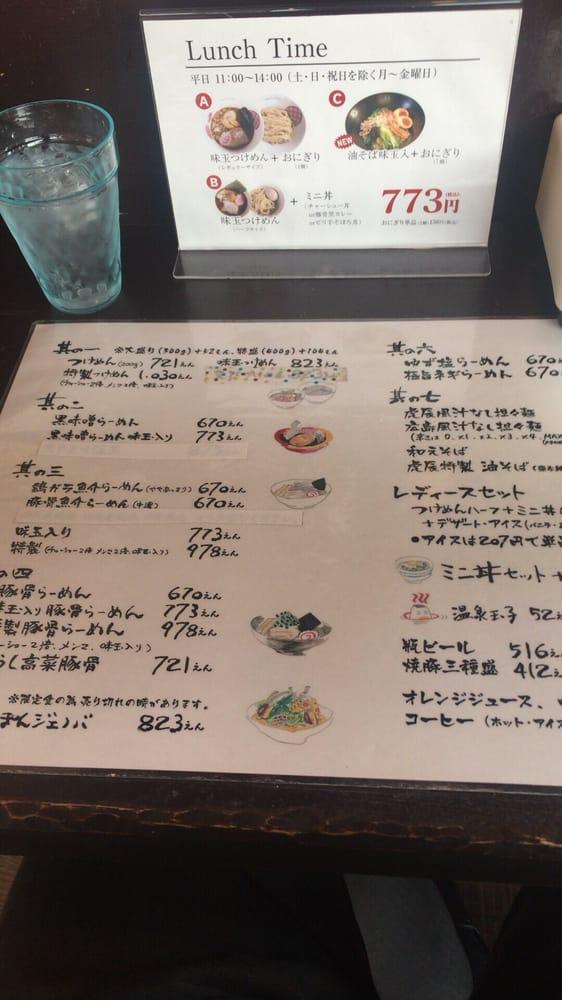 Lunch Time
平日 11:00〜14:00（土・日・祝日を除く月〜金曜日）
A
味玉つけめん＋おにぎり
（レギュラーサイズ）（1個）
C
NEW
油そば味玉入＋おにぎり
（1個）
B
味玉つけめん
（ハーフサイズ）
＋ ミニ丼
（チャーシュー丼
or豚骨黒カレー
orピリ辛そぼろ丼）
773円
(税込)
其の一 ※大盛り(300g)+52えん、特盛(400g)+104えん
つけめん(200g) 721えん 味玉つけめん 823えん
特製つけめん 1.030えん
(チャーシュー2倍、メンマ2倍、味玉入り)
其の二
黒味噌らーめん 670えん
黒味噌らーめん 味玉入り 773えん
其の三
鶏ガラ魚介らーめん 670えん
豚骨魚介らーめん 670えん
味玉入り 773えん
特製(チャーシュー2倍 メンマ2倍、味玉入り) 978えん
の四
豚骨らーめん 670えん
味玉入り豚骨らーめん 773えん
製豚骨らーめん 978えん
ーシュー2倍、メンマ2倍、味玉入り)
らし高菜豚骨 721えん
※限定食の為売り切れの時があります。
ぽんジェノバ 823えん
其の六
ゆず塩らーめん 670
極旨ネギらーめん 670
其の七
虎辰風汁なし担々麺
広島風汁なし担々麺
(辛さは0、×1、×2、×3、×4、MAX
和えそば
虎辰特製 油そば
レディースセット
つけめんハーフ＋ミニ丼
＋デザート・アイス(バニラ・
●アイスは207円で単
ミニ丼セット＋
温泉玉子 52え
瓶ビール 516え
焼豚三種盛 412え
オレンジジュース、
コーヒー（ホット・アイス